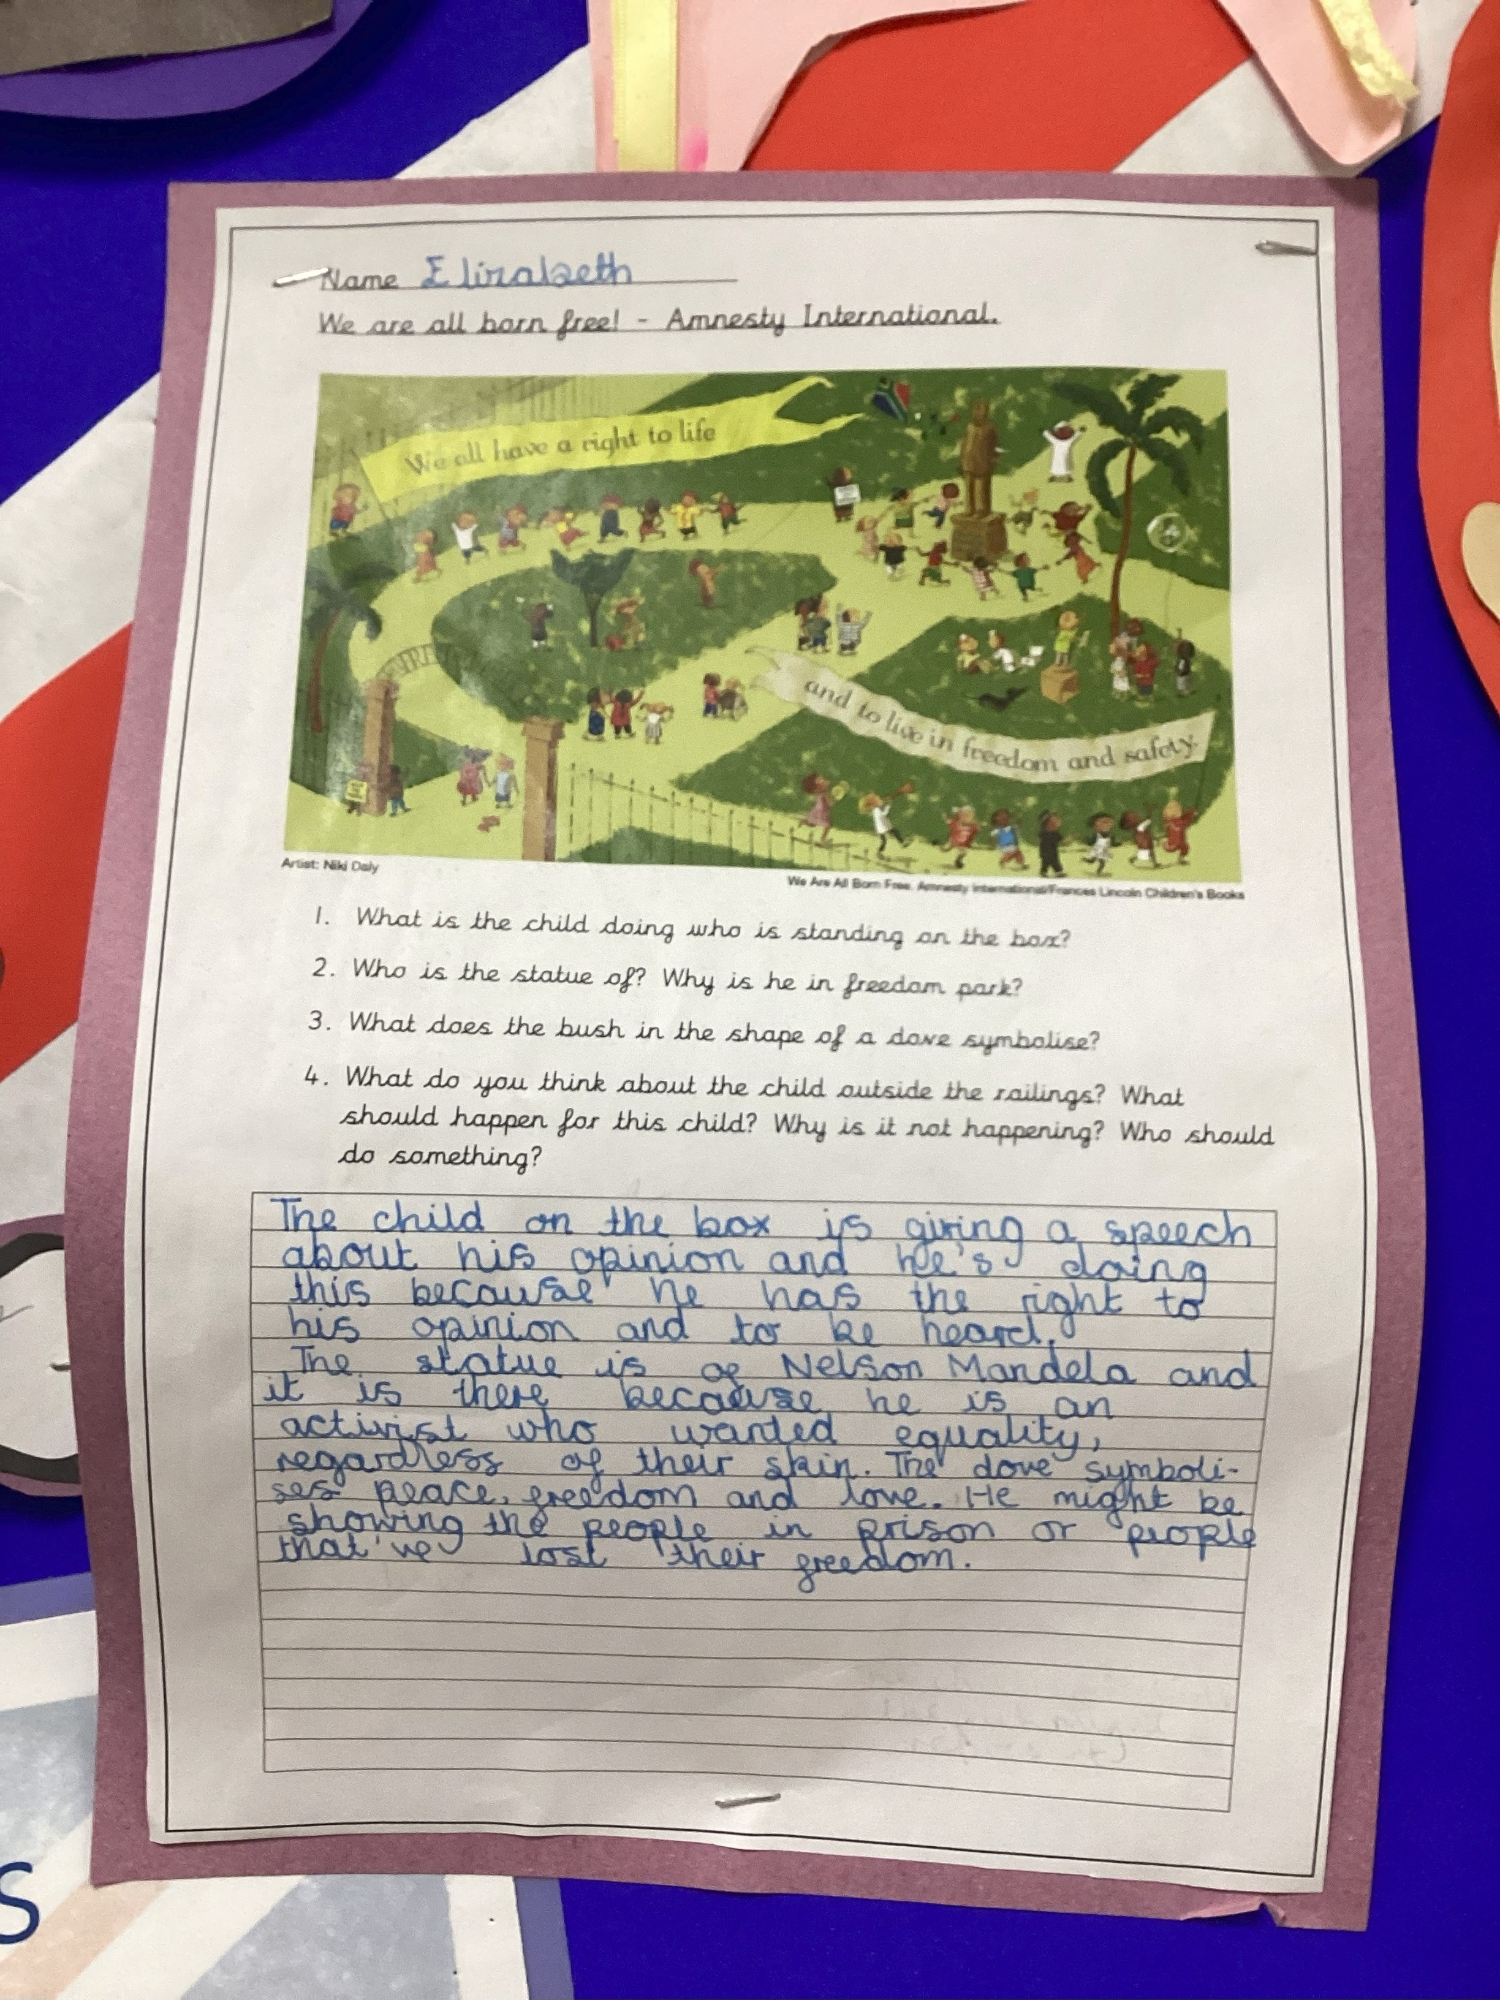 Name Elizabeth
We are all born free! - Amnesty International.
We all have a right to life
and to live in freedom and safety.
Artist: Niki Daly
We Are All Born Free, Amnesty International/Frances Lincoln Children's Books
1. What is the child doing who is standing on the box?
2. Who is the statue of? Why is he in freedom park?
3. What does the bush in the shape of a dove symbolise?
4. What do you think about the child outside the railings? What
should happen for this child? Why is it not happening? Who should
do something?
The child on the box is giving a speech
about his opinion and he's doing
this because he has the right to
his opinion and to be heard.
The statue is of Nelson Mandela and
it is there because he is an
activist who wanted equality,
regardless of their skin. The dove symboli-
ses peace, freedom and love. He might be
showing the people in prison or people
that've lost their freedom.
S